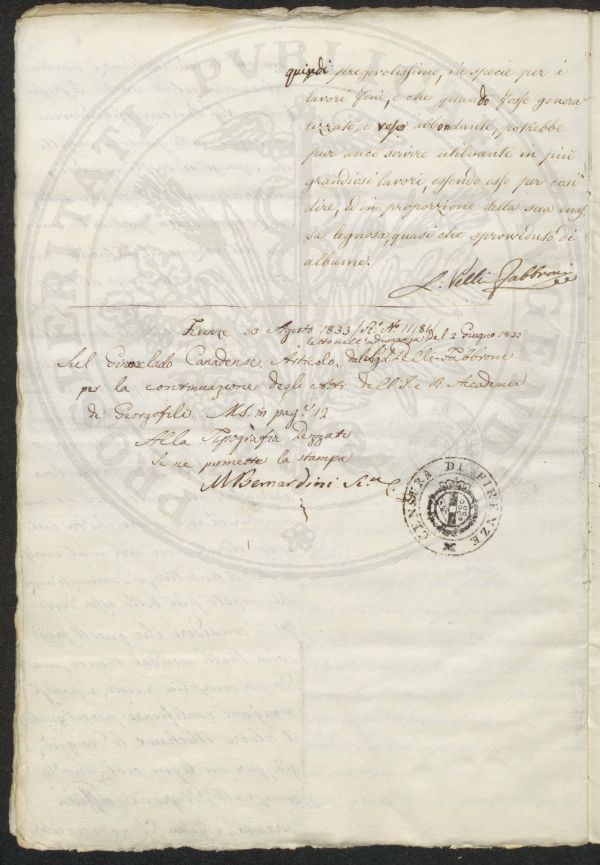 quindi pregevolissimo, in specie per i
lavori fini, e che quando fosse genera
lizzato, e reso abbondante, potrebbe
pur anco servire utilmente in più
grandiosi lavori, essendo esso per così
dire, ed in proporzione della sua mas
sa legnosa, quasi che sprovveduto di
alburno.
L. Pelli Fabbroni
Firenze 30 Agosto 1833
letto nell'adunanza del 2 Giugno 1833
Sul Canadense, Articolo, Pelli-Fabbroni
per la continuazione degli Atti dell'I. e R. Accademia
di Georgofili MS. in pag.e 12
Alla Tipografia Pezzati
Se ne permette la stampa
M Bernardini
CENSURA DI FIRENZE
PROSPERITATI PVBLICAE